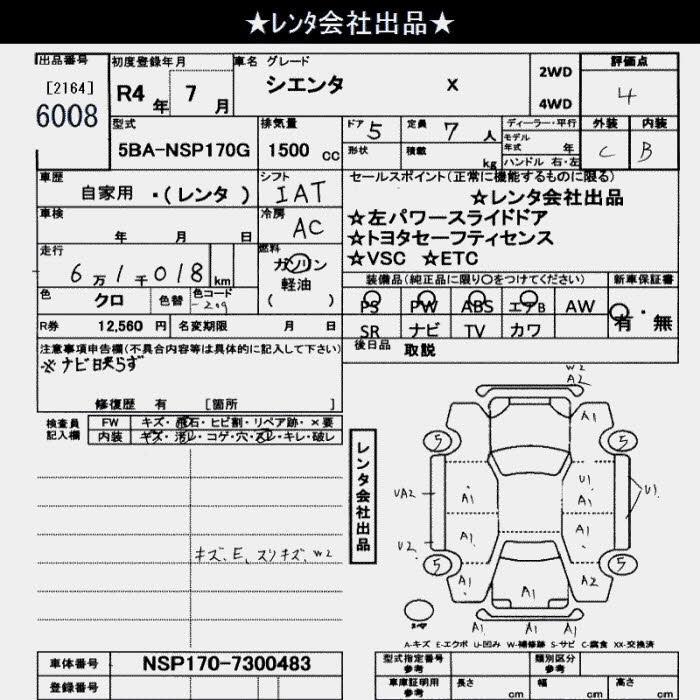 ★レンタ会社出品★
出品番号
[2164]
6008
初度登録年月
R4年 7月
車名 グレード
シエンタ X
2WD
4WD
評価点
4
型式
5BA-NSP170G
排気量
1500 cc
ドア 5
定員 7 人
形状
積載 kg
ディーラー・平行
モデル年式 年
ハンドル 右・左
外装 内装
C B
車歴
自家用 ・(レンタ )
シフト
IAT
セールスポイント(正常に機能するものに限る)
☆レンタ会社出品
☆左パワースライドドア
☆トヨタセーフティセンス
☆VSC ☆ETC
車検
年 月 日
冷房
AC
走行
6万1千018 km
燃料
ガソリン
軽油
( )
色
クロ
色替
色コード
209
装備品(純正品に限り○をつけてください) 新車保証書
PS PW ABS エアB AW
SR ナビ TV カワ
有・無
R券 12,560 円 名変期限 月 日
後日品 取説
注意事項申告欄(不具合内容等は具体的に記入して下さい)
※ナビ映らず
修復歴 有 [箇所 ]
検査員記入欄
FW キズ・飛石・ヒビ割・リペア跡・×要
内装 キズ・汚レ・コゲ・穴・スレ・キレ・破レ
キズ、E、スリキズ、W2
レンタ会社出品
W2
A2
A1
5 5
UA2 A1 U1 U1
A1 A1
U2
5 5
A1 A1 A2
A1 A1 A1
A-キズ E-エクボ U-凹み W-補修跡 S-サビ C-腐食 XX-交換済
車体番号 NSP170-7300483
登録番号
型式指定番号 参考
類別区分 参考
車庫証明用 参考
長さ cm 幅 cm 高さ cm